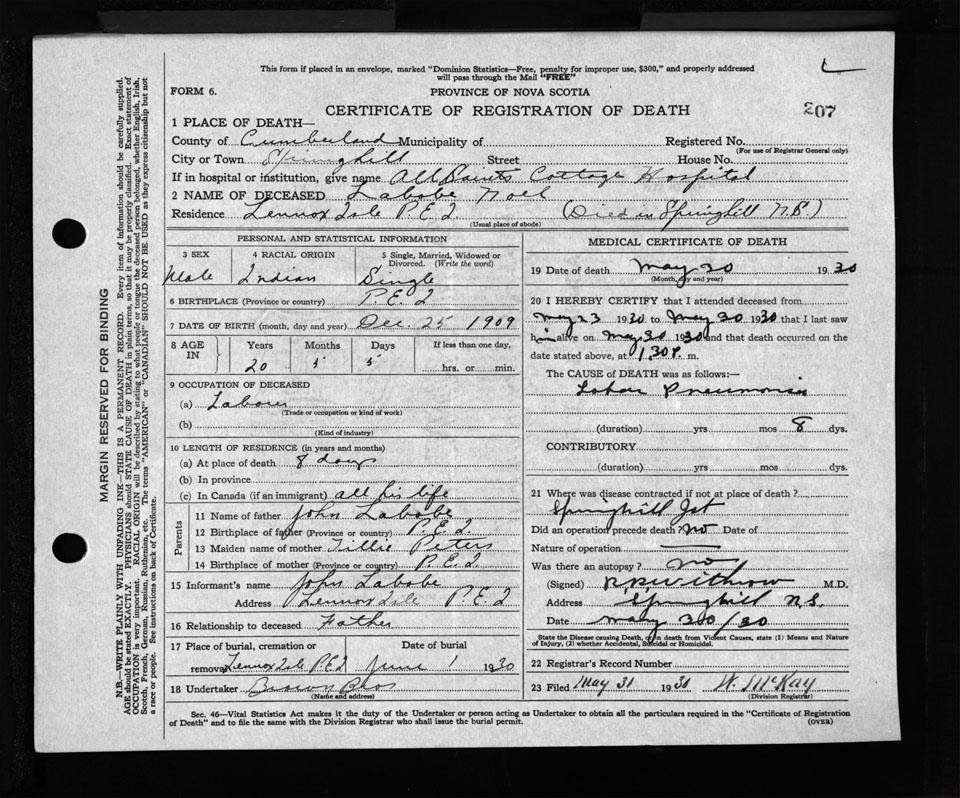 This form if placed in an envelope, marked "Dominion Statistics—Free, penalty for improper use, $300," and properly addressed
will pass through the Mail "FREE"
FORM 6.
PROVINCE OF NOVA SCOTIA
CERTIFICATE OF REGISTRATION OF DEATH
207
1 PLACE OF DEATH—
County of Cumberland Municipality of Registered No.
(For use of Registrar General only)
City or Town Springhill Street House No.
If in hospital or institution, give name All Saints Cottage Hospital
2 NAME OF DECEASED Labobe Noel
Residence Lennox Isle P.E.I (Died in Springhill N.S.)
(Usual place of abode)
PERSONAL AND STATISTICAL INFORMATION
3 SEX 4 RACIAL ORIGIN 5 Single, Married, Widowed or Divorced. (Write the word)
Male Indian Single
6 BIRTHPLACE (Province or country) P.E.I
7 DATE OF BIRTH (month, day and year) Dec. 25 1909
8 AGE IN Years Months Days If less than one day,
20 5 5 hrs. or min.
9 OCCUPATION OF DECEASED
(a) Laborer
(Trade or occupation or kind of work)
(b)
(Kind of industry)
10 LENGTH OF RESIDENCE (in years and months)
(a) At place of death 8 days
(b) In province
(c) In Canada (if an immigrant) all his life
Parents
11 Name of father John Labobe
12 Birthplace of father (Province or country) P.E.I.
13 Maiden name of mother Tillie Peters
14 Birthplace of mother (Province or country) P.E.I.
15 Informant's name John Labobe
Address Lennox Isle P.E.I
16 Relationship to deceased Father
17 Place of burial, cremation or Date of burial
removal Lennox Isle P.E.I June 1 1930
18 Undertaker Brown Bros
(Name and address)
MEDICAL CERTIFICATE OF DEATH
19 Date of death May 30 1930
(Month, day and year)
20 I HEREBY CERTIFY that I attended deceased from
May 23 1930 to May 30 1930 that I last saw
him alive on May 30 1930 and that death occurred on the
date stated above, at 1.30 P. m.
The CAUSE of DEATH was as follows:
Lobar Pneumonia
(duration) yrs mos 8 dys.
CONTRIBUTORY
(duration) yrs mos dys.
21 Where was disease contracted if not at place of death?
Springhill Jct
Did an operation precede death? No Date of
Nature of operation —
Was there an autopsy? No
(Signed) Withrow M.D.
Address Springhill N.S.
Date May 30/30
State the Disease causing Death, or in death from Violent Causes, state (1) Means and Nature
of Injury, (2) whether Accidental, Suicidal or Homicidal.
22 Registrar's Record Number
23 Filed May 31 1930 W. McKay
(Division Registrar)
Sec. 46—Vital Statistics Act makes it the duty of the Undertaker or person acting as Undertaker to obtain all the particulars required in the "Certificate of Registration
of Death" and to file the same with the Division Registrar who shall issue the burial permit. (OVER)
MARGIN RESERVED FOR BINDING
N.B.—WRITE PLAINLY WITH UNFADING INK—THIS IS A PERMANENT RECORD. Every item of information should be carefully supplied.
AGE should be stated EXACTLY. PHYSICIANS should STATE CAUSE OF DEATH in plain terms, so that it may be properly classified. Exact statement of
OCCUPATION is very important. RACIAL ORIGIN will be described by stating to what people or tongue the deceased person belonged, whether English, Irish,
Scotch, French, German, Russian, Ruthenian, etc. The terms "AMERICAN" or "CANADIAN" SHOULD NOT BE USED as they express citizenship but not
a race or people. See instructions on back of Certificate.